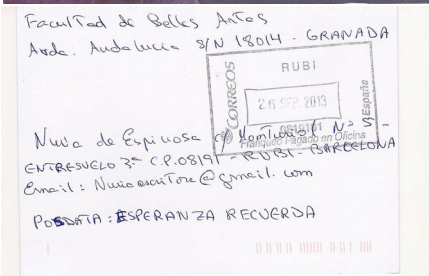 Facultad de Bellas Artes
Avda. Andalucia S/N 18014. GRANADA
CORREOS
RUBI
26 SEP. 2013
0818101
Franqueo Pagado en Oficina
España
Nuria de Espinosa c/ Monturiol Nº
ENTRESUELO 3ª C.P.08191 - RUBI - BARCELONA
Email: Nuriaescritora@gmail.com
POSDATA: ESPERANZA RECUERDA